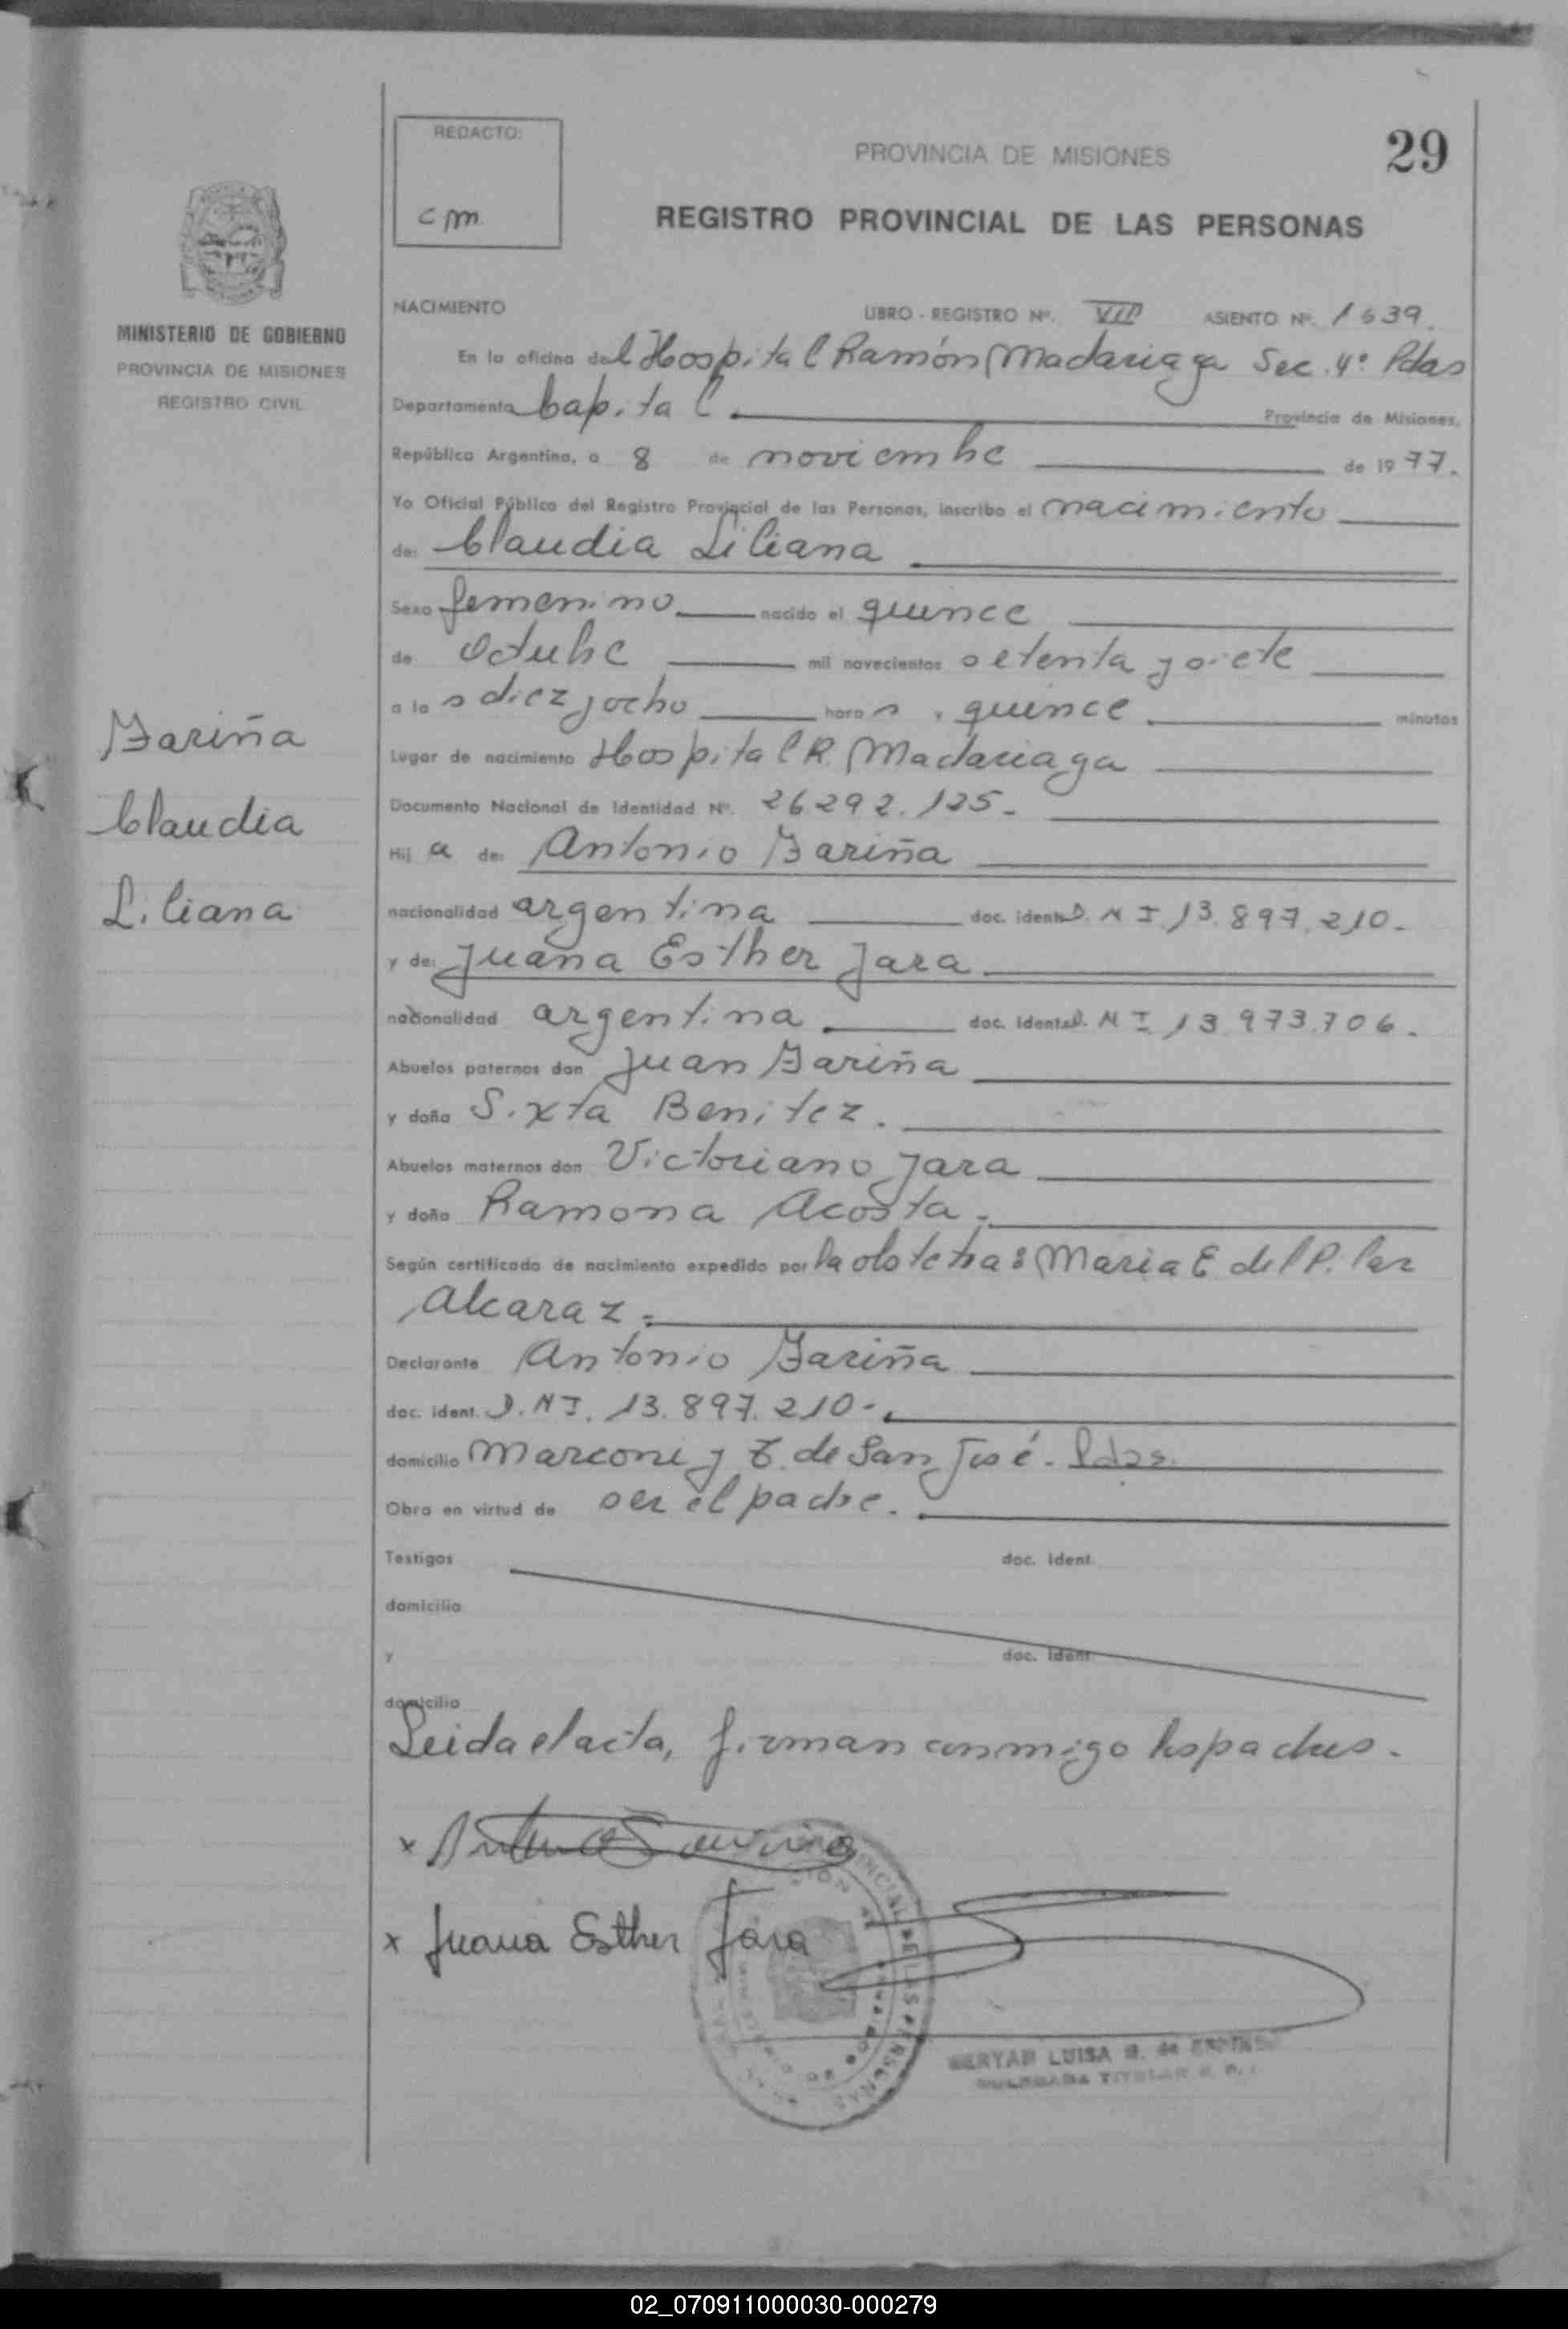 REDACTO:
cm.
PROVINCIA DE MISIONES
29
REGISTRO PROVINCIAL DE LAS PERSONAS
MINISTERIO DE GOBIERNO
PROVINCIA DE MISIONES
REGISTRO CIVIL
NACIMIENTO LIBRO - REGISTRO Nº. VII ASIENTO Nº. 1639.
En la oficina del Hospital Ramón Madariaga Sec. 4º Pdas
Departamento Capital Provincia de Misiones,
República Argentina, a 8 de noviembre de 1977.
Yo Oficial Público del Registro Provincial de las Personas, inscribo el nacimiento
de: Claudia Liliana
Sexo femenino nacido el quince
de octubre mil novecientos setenta y siete
a las diez y ocho horas, quince minutos
Lugar de nacimiento Hospital R. Madariaga
Documento Nacional de Identidad Nº. 26292.125-
Hija de: Antonio Fariña
nacionalidad argentina doc. ident. D.N I. 13.897.210.-
y de: Juana Esther Jara
nacionalidad argentina doc. ident. D. N I 13.973.706.
Abuelos paternos don Juan Fariña
y doña Sixta Benitez.
Abuelos maternos don Victoriano Jara
y doña Ramona Acosta.
Según certificado de nacimiento expedido por la obstetra: Maria E. del Pilar
Alcaraz.
Declarante Antonio Fariña
doc. ident. D.NI. 13.897.210-
domicilio Marconi y T. de San José. Pdas.
Obra en virtud de ser el padre.
Testigos doc. ident.
domicilio
y doc. ident.
domicilio
Leida el acta, firman conmigo los padres.
Fariña
Claudia
Liliana
x Antonio Fariña
x Juana Esther Jara
LUISA
02_070911000030-000279